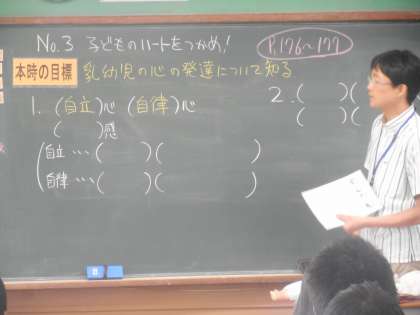 No.3 子どものハートをつかめ! P.176~177
本時の目標 乳幼児の心の発達について知る
1. (自立)心 (自律)心
( )感
自立…( )( )
自律…( )( )
2. ( )(
( )(